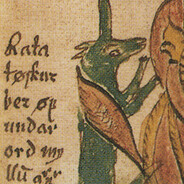 Rata
tøskur
ber øf
undar
ord my
llū